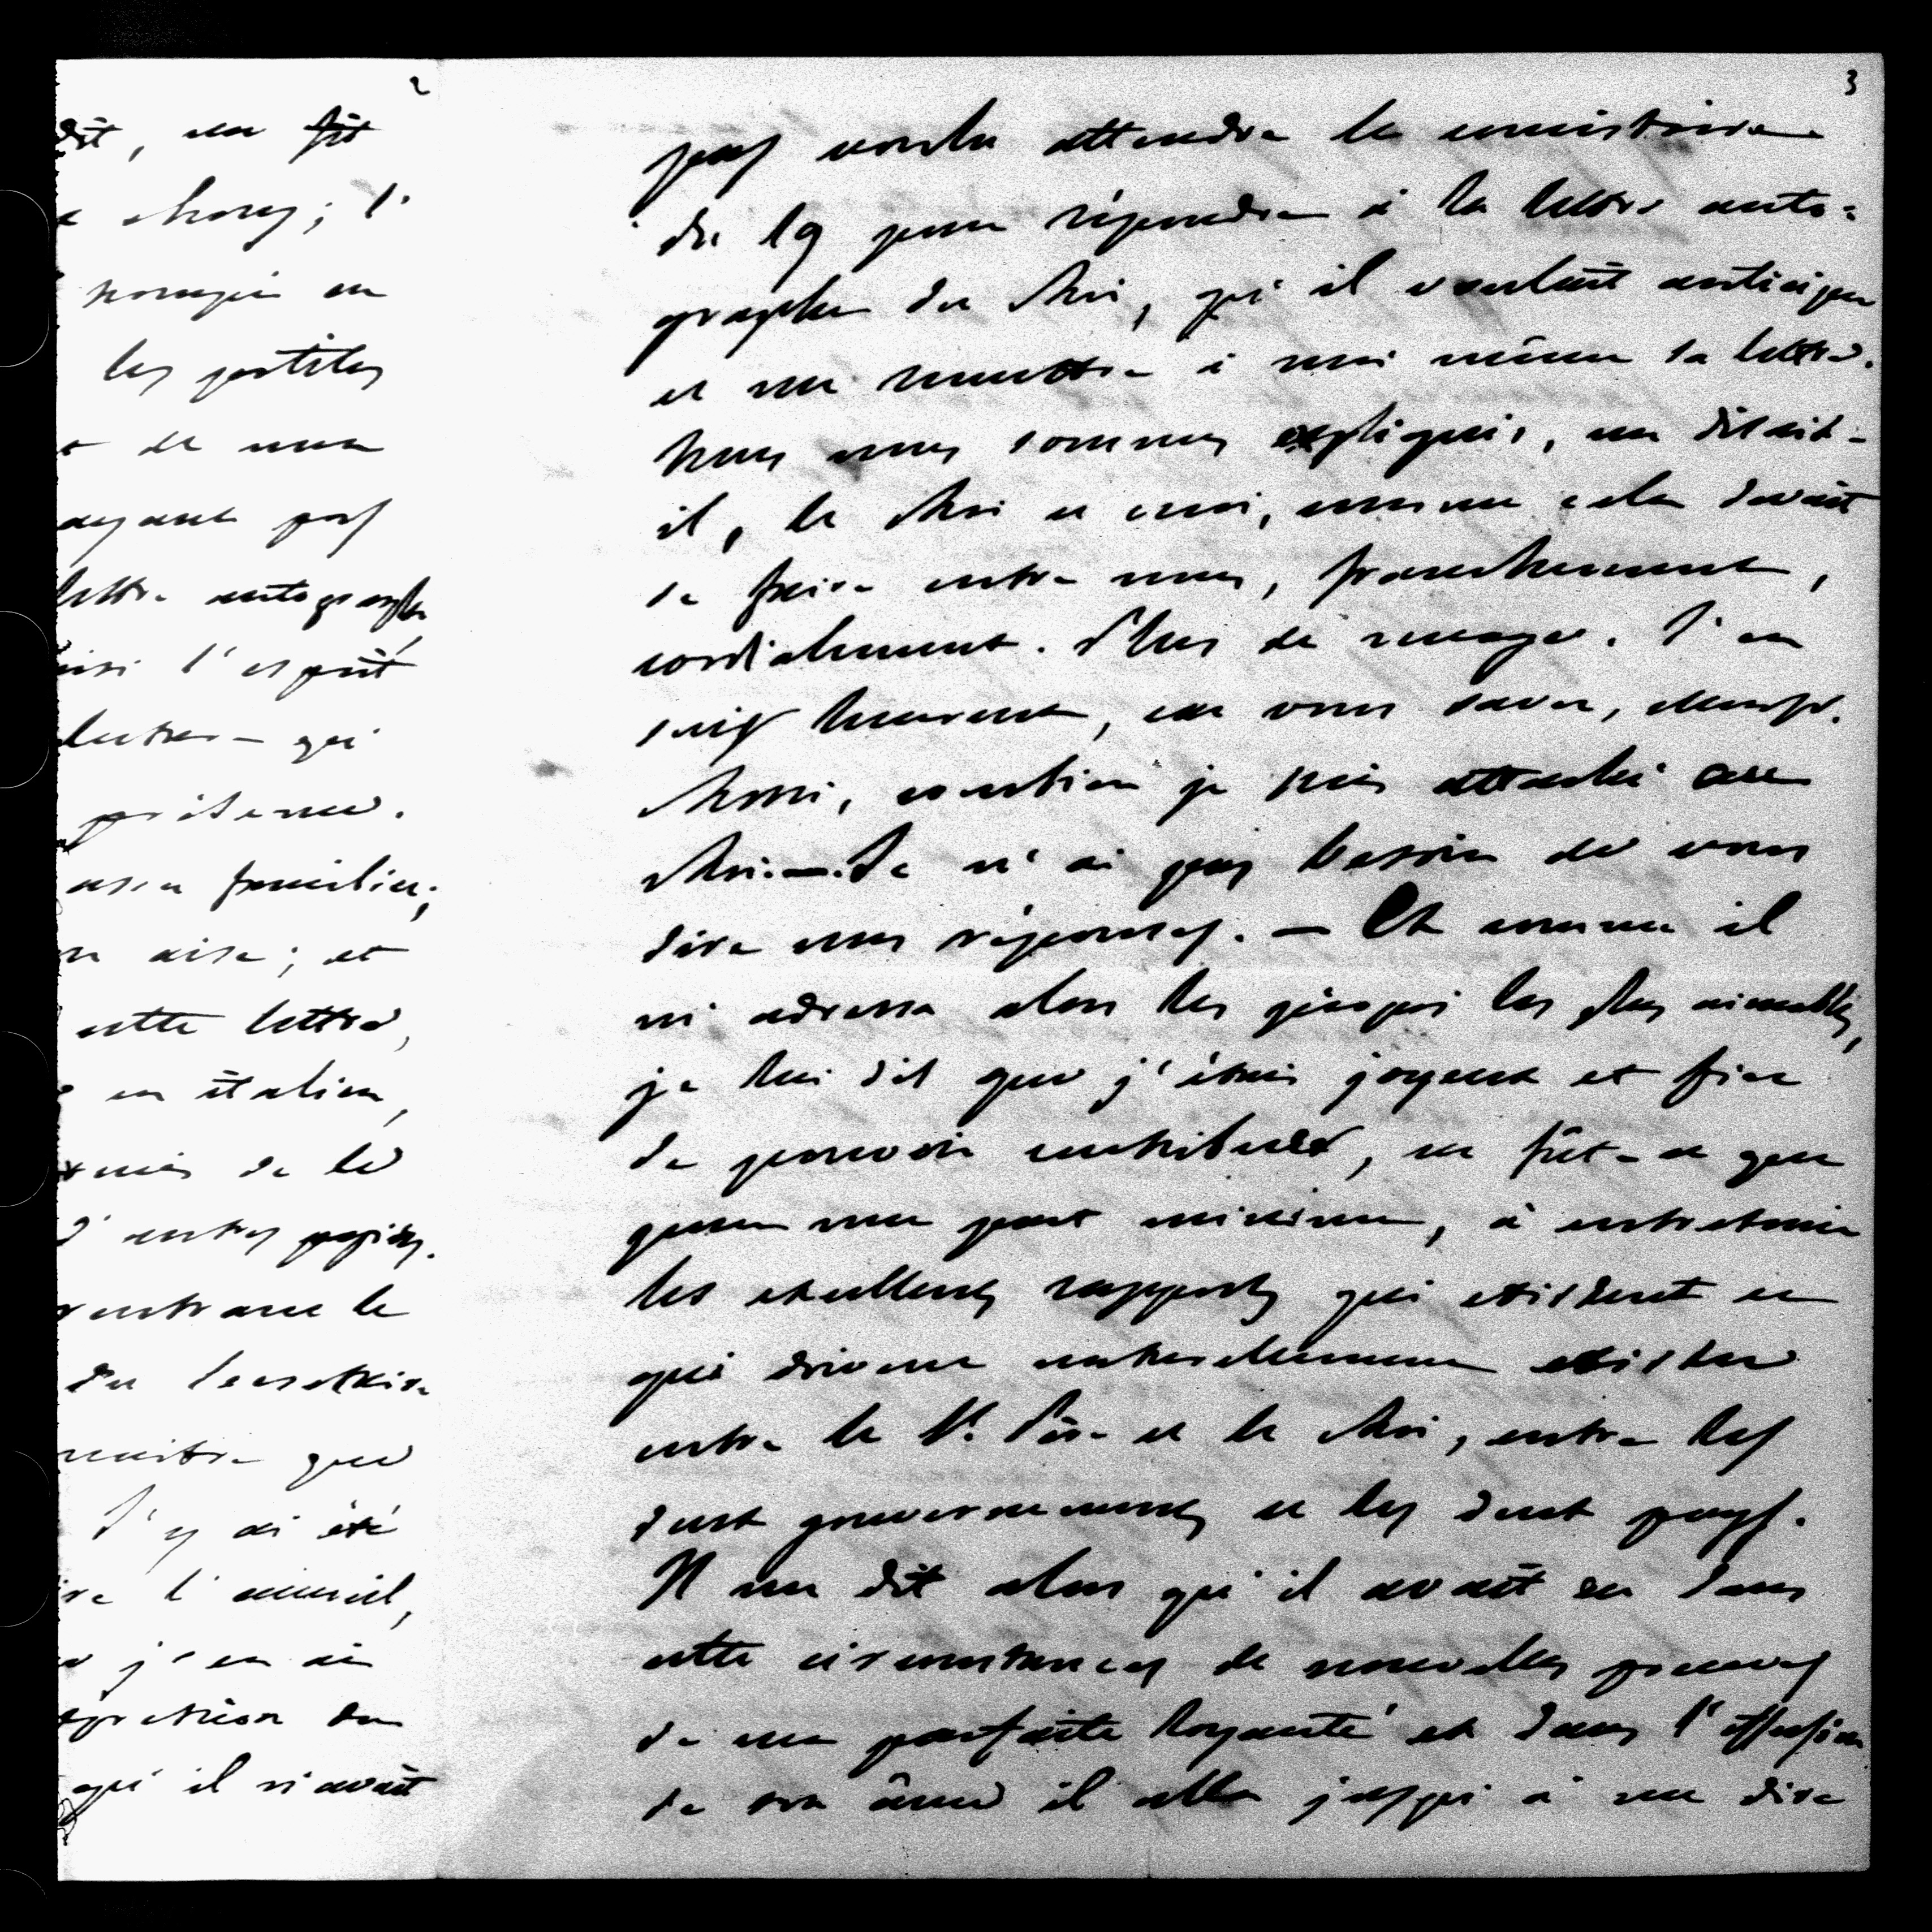 2
dit, en fit
choses; l'
les postiles
et de mon
ayant pas
lettre autographe
ainsi l'esprit
qui
présence.
assez familier;
aise; et
cette lettre,
en italien,
de le
d'autres papiers.
rentrant le
du Secrétaire
que
J'y ai été
l'accueil,
j'en ai
du
qu'il n'avait
3
pas voulu attendre le consistoire
du 19 pour répondre à la lettre auto=
graphe du Roi, qu'il voulait anticiper
et me remettre à moi même sa lettre.
Nous nous sommes expliqués, me disait-
il, le Roi et moi, comme cela devait
se faire entre nous, franchement,
cordialement. Plus de nuages. J'en
suis heureux, car vous savez, cher
Rossi, combien je suis attaché au
Roi. — Je n'ai pas besoin de vous
dire mes réponses. — Et comme il
m'adressa alors les propos les plus aimables,
je lui dis que j'étais joyeux et fier
de pouvoir contribuer, ne fût-ce que
pour une part minime, à entretenir
les excellents rapports qui existent et
qui doivent naturellement exister
entre le St. Père et le Roi, entre les
deux gouvernements et les deux pays.
Il me dit alors qu'il avait eu dans
cette circonstances de nouvelles preuves
de ma parfaite loyauté et dans l'effusion
de son âme il alla jusqu'à me dire